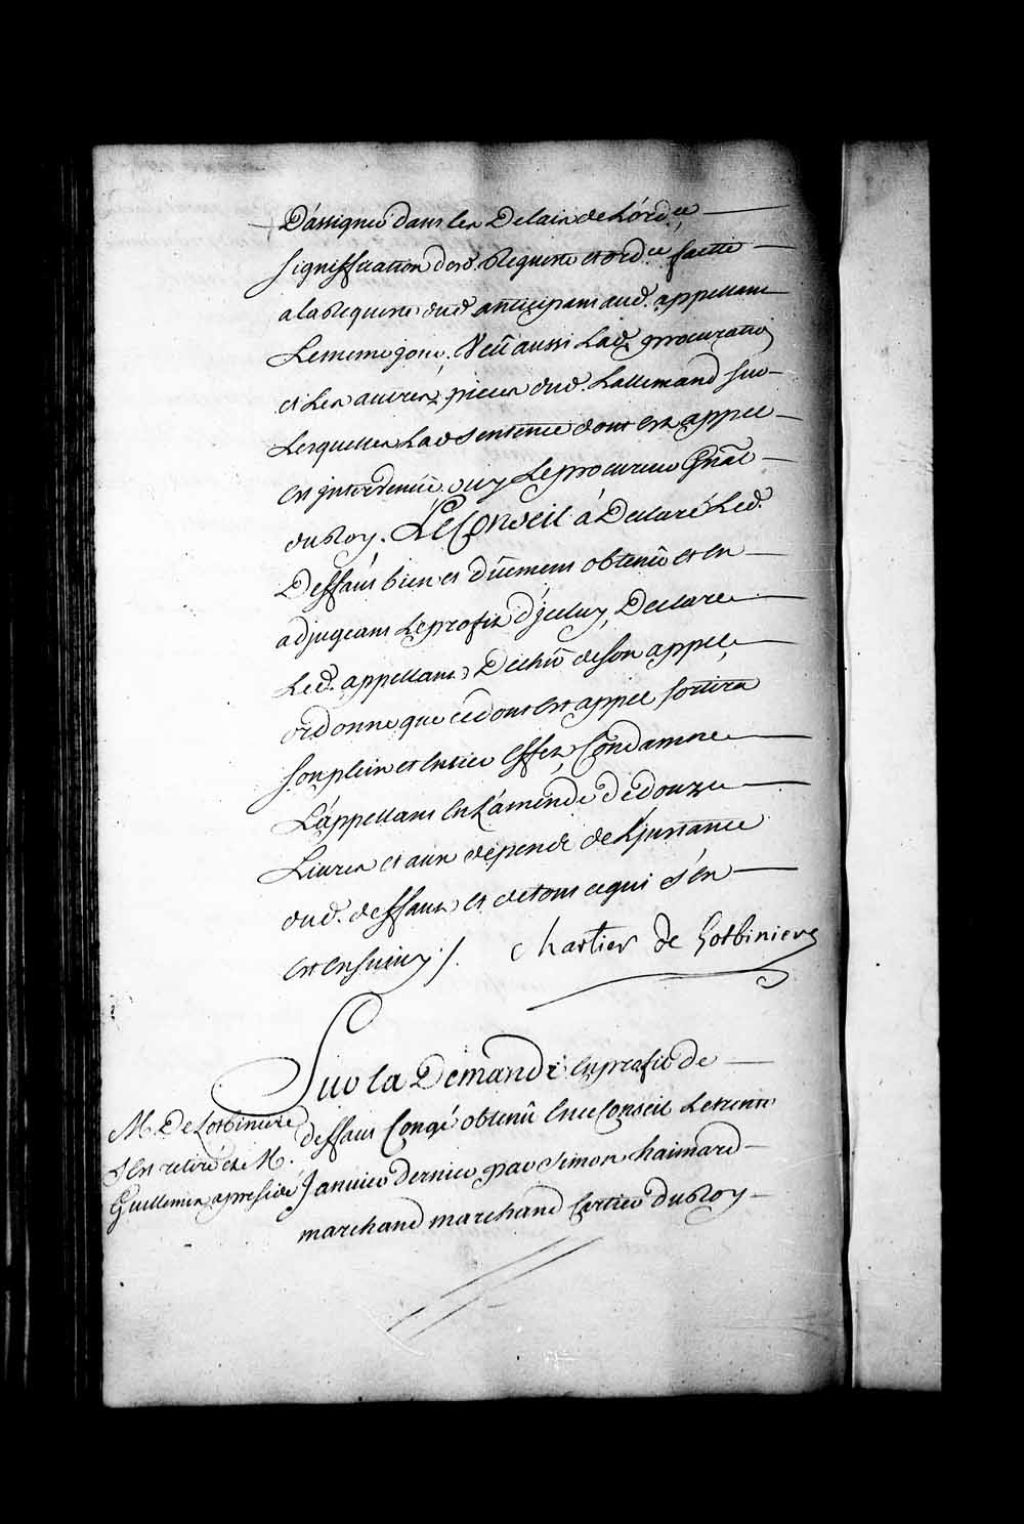 D'assigner dans les Delais de L'ord.ce
signiffication desd. Requeste et ord.ce faitte
a la Requeste dud anticipant aud. appellant
Le meme jour, Veu aussi Lad. procuration
et Les autres pieces dud. Lallemand sur
Lesquelles Lad sentence dont est appel
est intervenüe, ouy Le procureur Gñal
du Roy. Le Conseil a Declaré Led.
Deffaut bien et düement obtenû et en
adjugeant Le profit d'jceluy, Declare
Led. appellant Dechû de son appel
ordonne que ce dont est appel sortira
son plein et entier Effet, Condamne
L'appellant en L'amende de douze
Livres et aux dépends de L'jnstance
dud. deffaut et de tout ce qui s'en
est ensuivy ./. Chartier de Lotbiniere
Sur la Demande en profit de
deffaut Congé obtenû en ce Conseil Le trente
Janvier dernier par Simon haimard
marchand marchand Cartier du Roy
M. De Lotbiniere
s'est retiré et M.
Guillemin a presidé